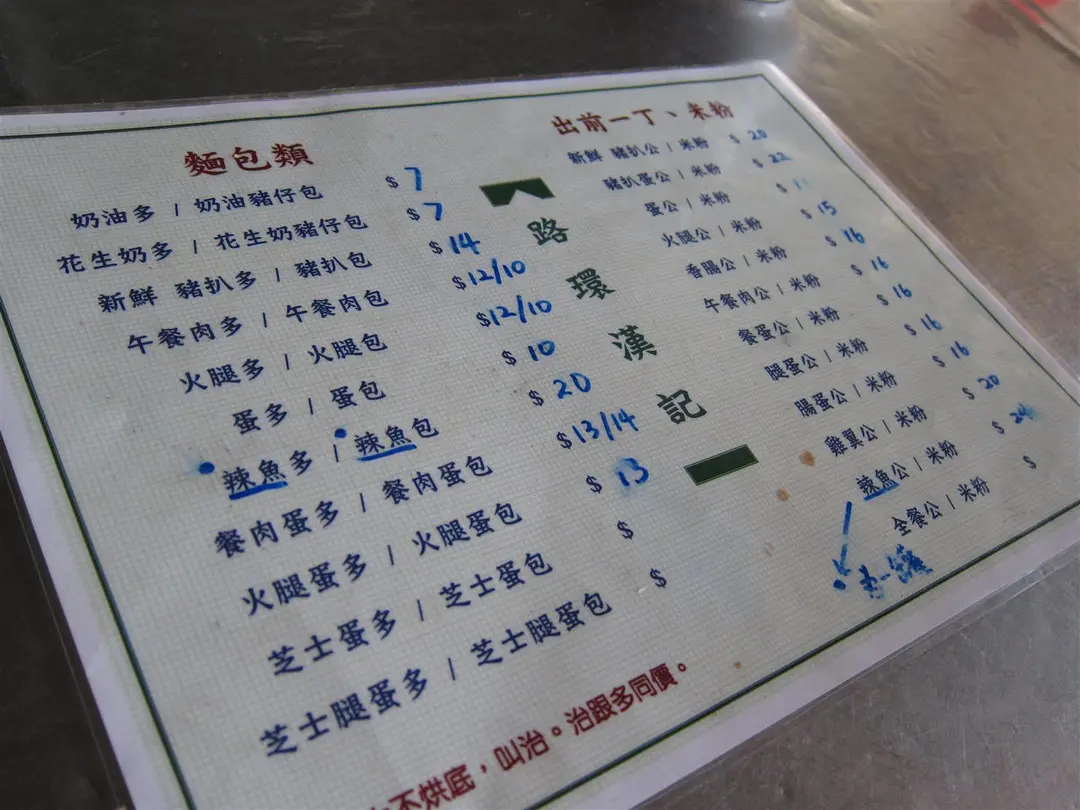 麵包類
奶油多 / 奶油豬仔包 $7
花生奶多 / 花生奶豬仔包 $7
新鮮 豬扒多 / 豬扒包 $14
午餐肉多 / 午餐肉包 $12/10
火腿多 / 火腿包 $12/10
蛋多 / 蛋包 $10
辣魚多 / 辣魚包 $20
餐肉蛋多 / 餐肉蛋包 $13/14
火腿蛋多 / 火腿蛋包 $13
芝士蛋多 / 芝士蛋包 $
芝士腿蛋多 / 芝士腿蛋包 $
不烘底,叫治。治跟多同價。
路環漢記
出前一丁、米粉
新鮮 豬扒公 / 米粉 $20
豬扒蛋公 / 米粉 $22
蛋公 / 米粉 $
火腿公 / 米粉 $15
香腸公 / 米粉 $16
午餐肉公 / 米粉 $16
餐蛋公 / 米粉 $16
腿蛋公 / 米粉 $16
腸蛋公 / 米粉 $16
雞翼公 / 米粉 $20
辣魚公 / 米粉 $24
全餐公 / 米粉 $